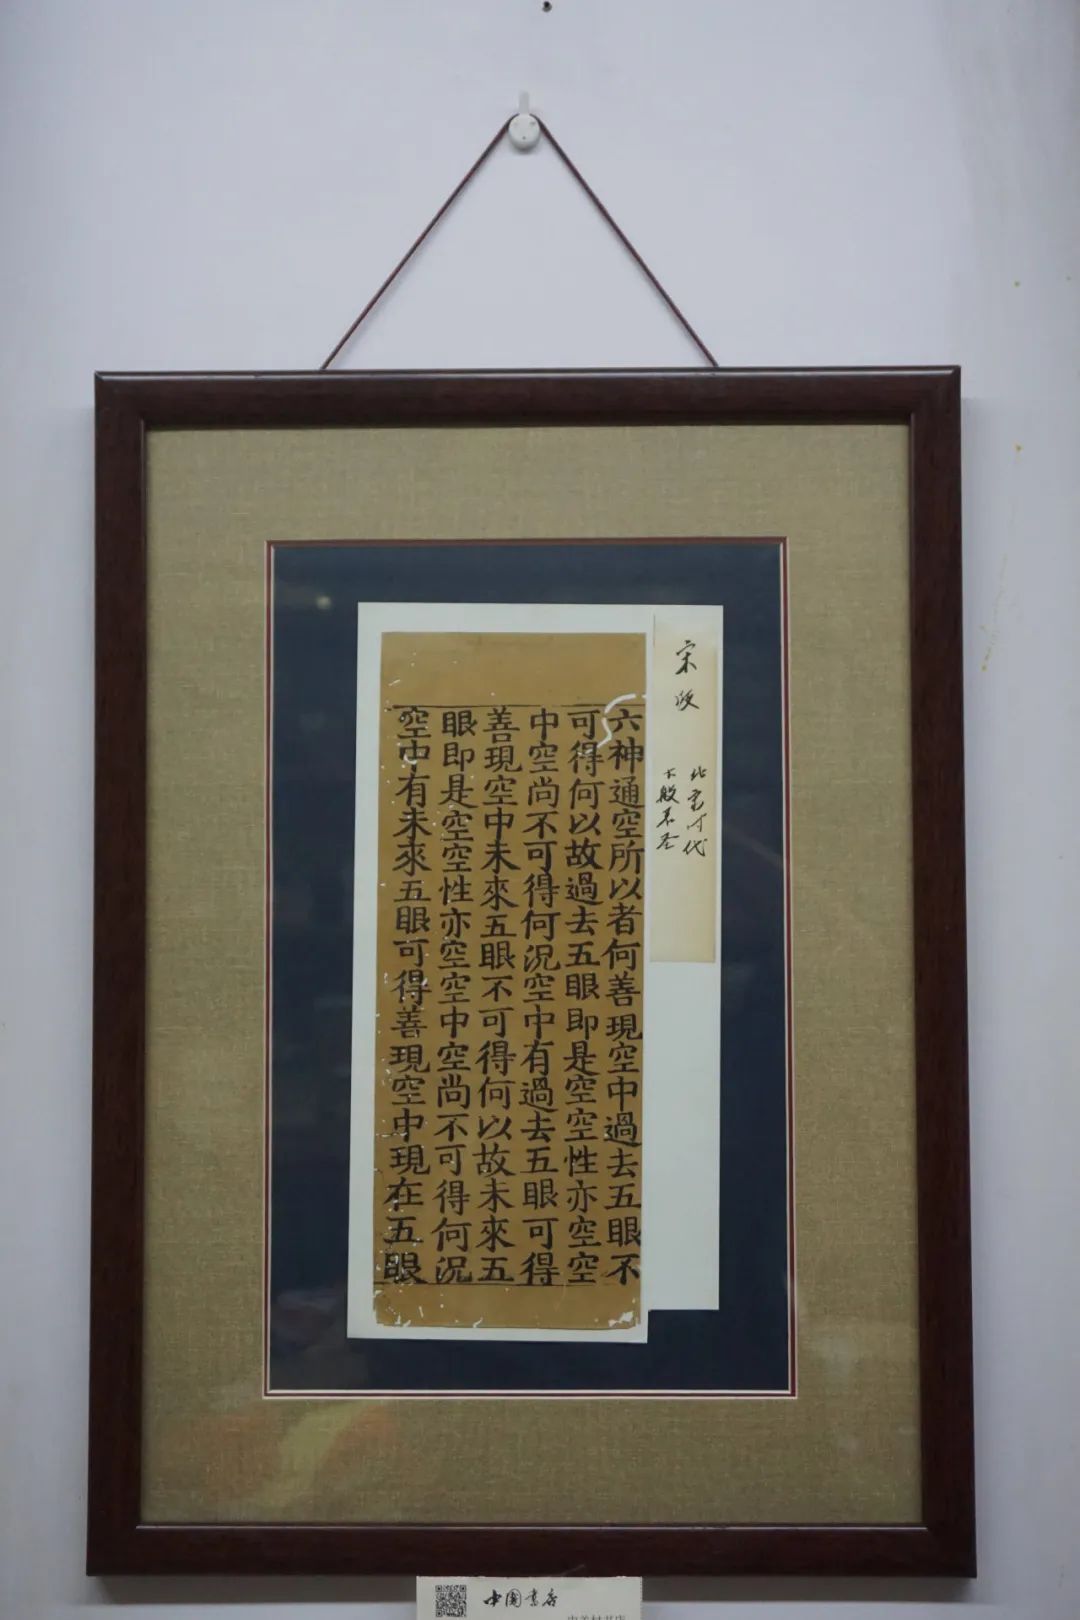 宋版
北宋时代
大般若
六神通空所以者何善現空中過去五眼不
可得何以故過去五眼即是空空性亦空空
中空尚不可得何況空中有過去五眼可得
善現空中未來五眼不可得何以故未來五
眼即是空空性亦空空中空尚不可得何況
空中有未來五眼可得善現空中現在五眼
中國書店